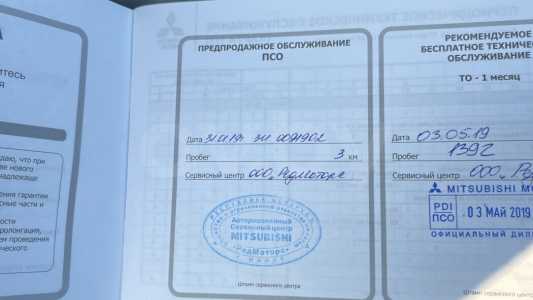 итесь
ия
даю, что при
ве нового
надлежаще
ения гарантии
сные части и
ности
ролонгация,
ем проведения
ического
ПРЕДПРОДАЖНОЕ ОБСЛУЖИВАНИЕ
ПСО
Дата
Пробег 3 км
Сервисный центр ООО "РедМоторс
Авторизованный
Сервисный центр
MITSUBISHI
"РедМоторс"
Штамп сервисного центра
РЕКОМЕНДУЕМОЕ
БЕСПЛАТНОЕ ТЕХНИЧЕС
ОБСЛУЖИВАНИЕ
ТО - 1 месяц
Дата 03.05.19
Пробег 1392
Сервисный центр ООО "Ре
MITSUBISHI MO
PDI
ПСО
03 МАЙ 2019
ОФИЦИАЛЬНЫЙ ДИЛ
Штамп сервисного центр